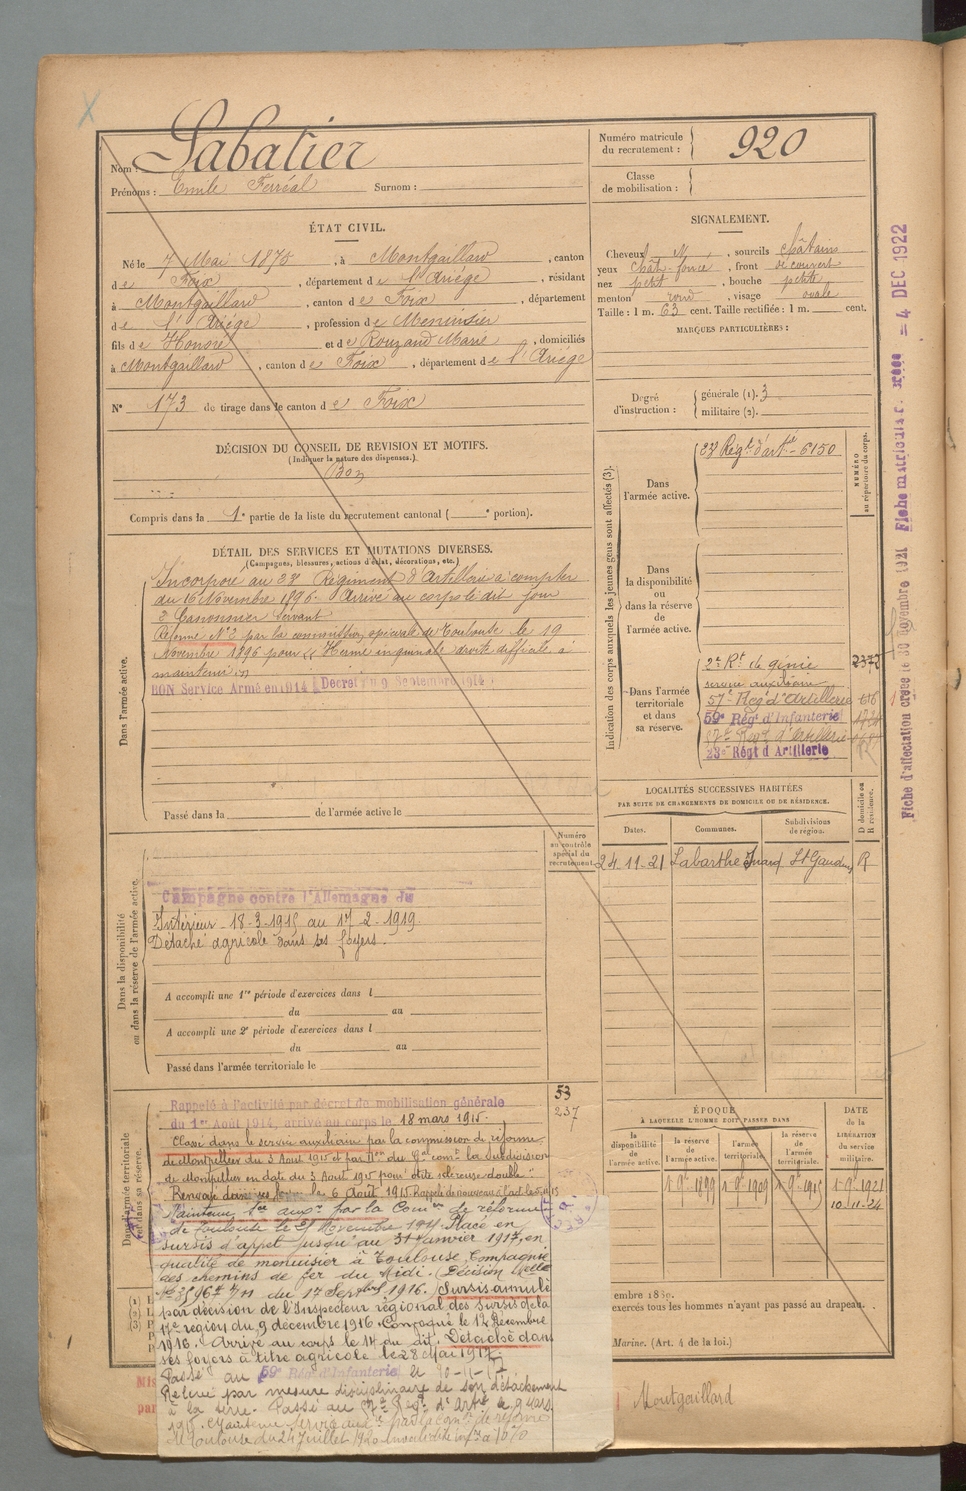 Nom : Sabatier
Prénoms : Emile Ferréal Surnom :
Numéro matricule du recrutement : 920
Classe de mobilisation :
ÉTAT CIVIL.
Né le 7 Mai 1875, à Montgaillard, canton
de Foix, département de l'Ariége, résidant
à Montgaillard, canton de Foix, département
de l'Ariége, profession de Menuisier
fils de Honoré et de Rouzaud Marie, domiciliés
à Montgaillard, canton de Foix, département de l'Ariége
N° 173 de tirage dans le canton de Foix
SIGNALEMENT.
Cheveux N, sourcils châtains
yeux chât. foncé, front découvert
nez petit, bouche petite
menton rond, visage ovale
Taille : 1 m. 63 cent. Taille rectifiée : 1 m. cent.
MARQUES PARTICULIÈRES :
Degré d'instruction : générale (1). 3
militaire (2).
DÉCISION DU CONSEIL DE REVISION ET MOTIFS.
(Indiquer la nature des dispenses.)
Bon
Compris dans la 1e partie de la liste du recrutement cantonal ( e portion).
DÉTAIL DES SERVICES ET MUTATIONS DIVERSES.
(Campagnes, blessures, actions d'éclat, décorations, etc.)
Dans l'armée active.
Incorporé au 23e Régiment d'Artillerie à compter
du 16 Novembre 1896. Arrivé au corps le dit jour
2e Canonnier servant
Réformé N° 2 par la commission spéciale de Toulouse le 19
Novembre 1896 pour Hernie inguinale droite difficile à
maintenir
BON Service Armé en 1914 (Décret du 9 Septembre 1914)
Passé dans la de l'armée active le
Indication des corps auxquels les jeunes gens sont affectés (3).
NUMÉRO au répertoire du corps.
Dans l'armée active.
23 Régt d'art. - 6150
Dans la disponibilité ou dans la réserve de l'armée active.
Dans l'armée territoriale et dans sa réserve.
2e Rt de génie 2372
service auxiliaire
57e Rég d'Artillerie
59e Régt d'Infanterie
57e Rég. d'Artillerie
23e Régt d'Artillerie
LOCALITÉS SUCCESSIVES HABITÉES
PAR SUITE DE CHANGEMENTS DE DOMICILE OU DE RÉSIDENCE.
Dates. Communes. Subdivisions de région. D domicile ou R résidence.
24.11.21 Labarthe Inard St Gaudens R
Numéro au contrôle spécial du recrutement.
Dans la disponibilité ou dans la réserve de l'armée active.
Campagne contre l'Allemagne du
Intérieur - 18-3-1915 au 17-2-1919.
Détaché agricole dans ses foyers.
A accompli une 1re période d'exercices dans l
du au
A accompli une 2e période d'exercices dans l
du au
Passé dans l'armée territoriale le
53
237
Rappelé à l'activité par décret de mobilisation générale
du 1er Août 1914, arrivé au corps le 18 mars 1915.
Classé dans le service auxiliaire par la commission de réforme
de Montpellier du 3 Août 1915 et par Don du Gal comt la Subdivision
de Montpellier en date du 3 Août 1915 pour "otite scléreuse double"
Renvoyé dans ses foyers le 6 Août 1915 Rappelé de nouveau à l'act.
Maintenu Sce auxre par la Comon de réforme
de Toulouse le Novembre Placé en
sursis d'appel jusqu'au 31 Janvier 1917, en
qualité de menuisier à Toulouse, Compagnie
des chemins de fer du Midi. (Décision Melle
du 17 Septbre 1916. Sursis annulé
par décision de l'Inspecteur régional des Sursis de la
17e région du 9 décembre 1916. Convoqué le 12 Décembre
1916. Arrivé au corps le 14 du dit. Détaché dans
ses foyers à titre agricole le 28 Mai 1917.
Passé au 59e Régt d'Infanterie le
Relevé par mesure disciplinaire de son détachement
à la terre. Passé au 57e Régt d'Artie le 9 Mars
Maintenu service auxre par la Comon de réforme
de Toulouse du 24 Juillet 1920
ÉPOQUE
À LAQUELLE L'HOMME DOIT PASSER DANS
la disponibilité de l'armée active. la réserve de l'armée active. l'armée territoriale. la réserve de l'armée territoriale.
DATE de la LIBÉRATION du service militaire.
1 9bre 1899 1 9bre 1909 1 9bre 1915 1 9bre 1921
10.11.24
embre 1830.
exercés tous les hommes n'ayant pas passé au drapeau.
Marine. (Art. 4 de la loi.)
Montgaillard
Fiche d'affectation créée le 30 Novembre 1921 Fiche matricule créée = 4 DEC 1922